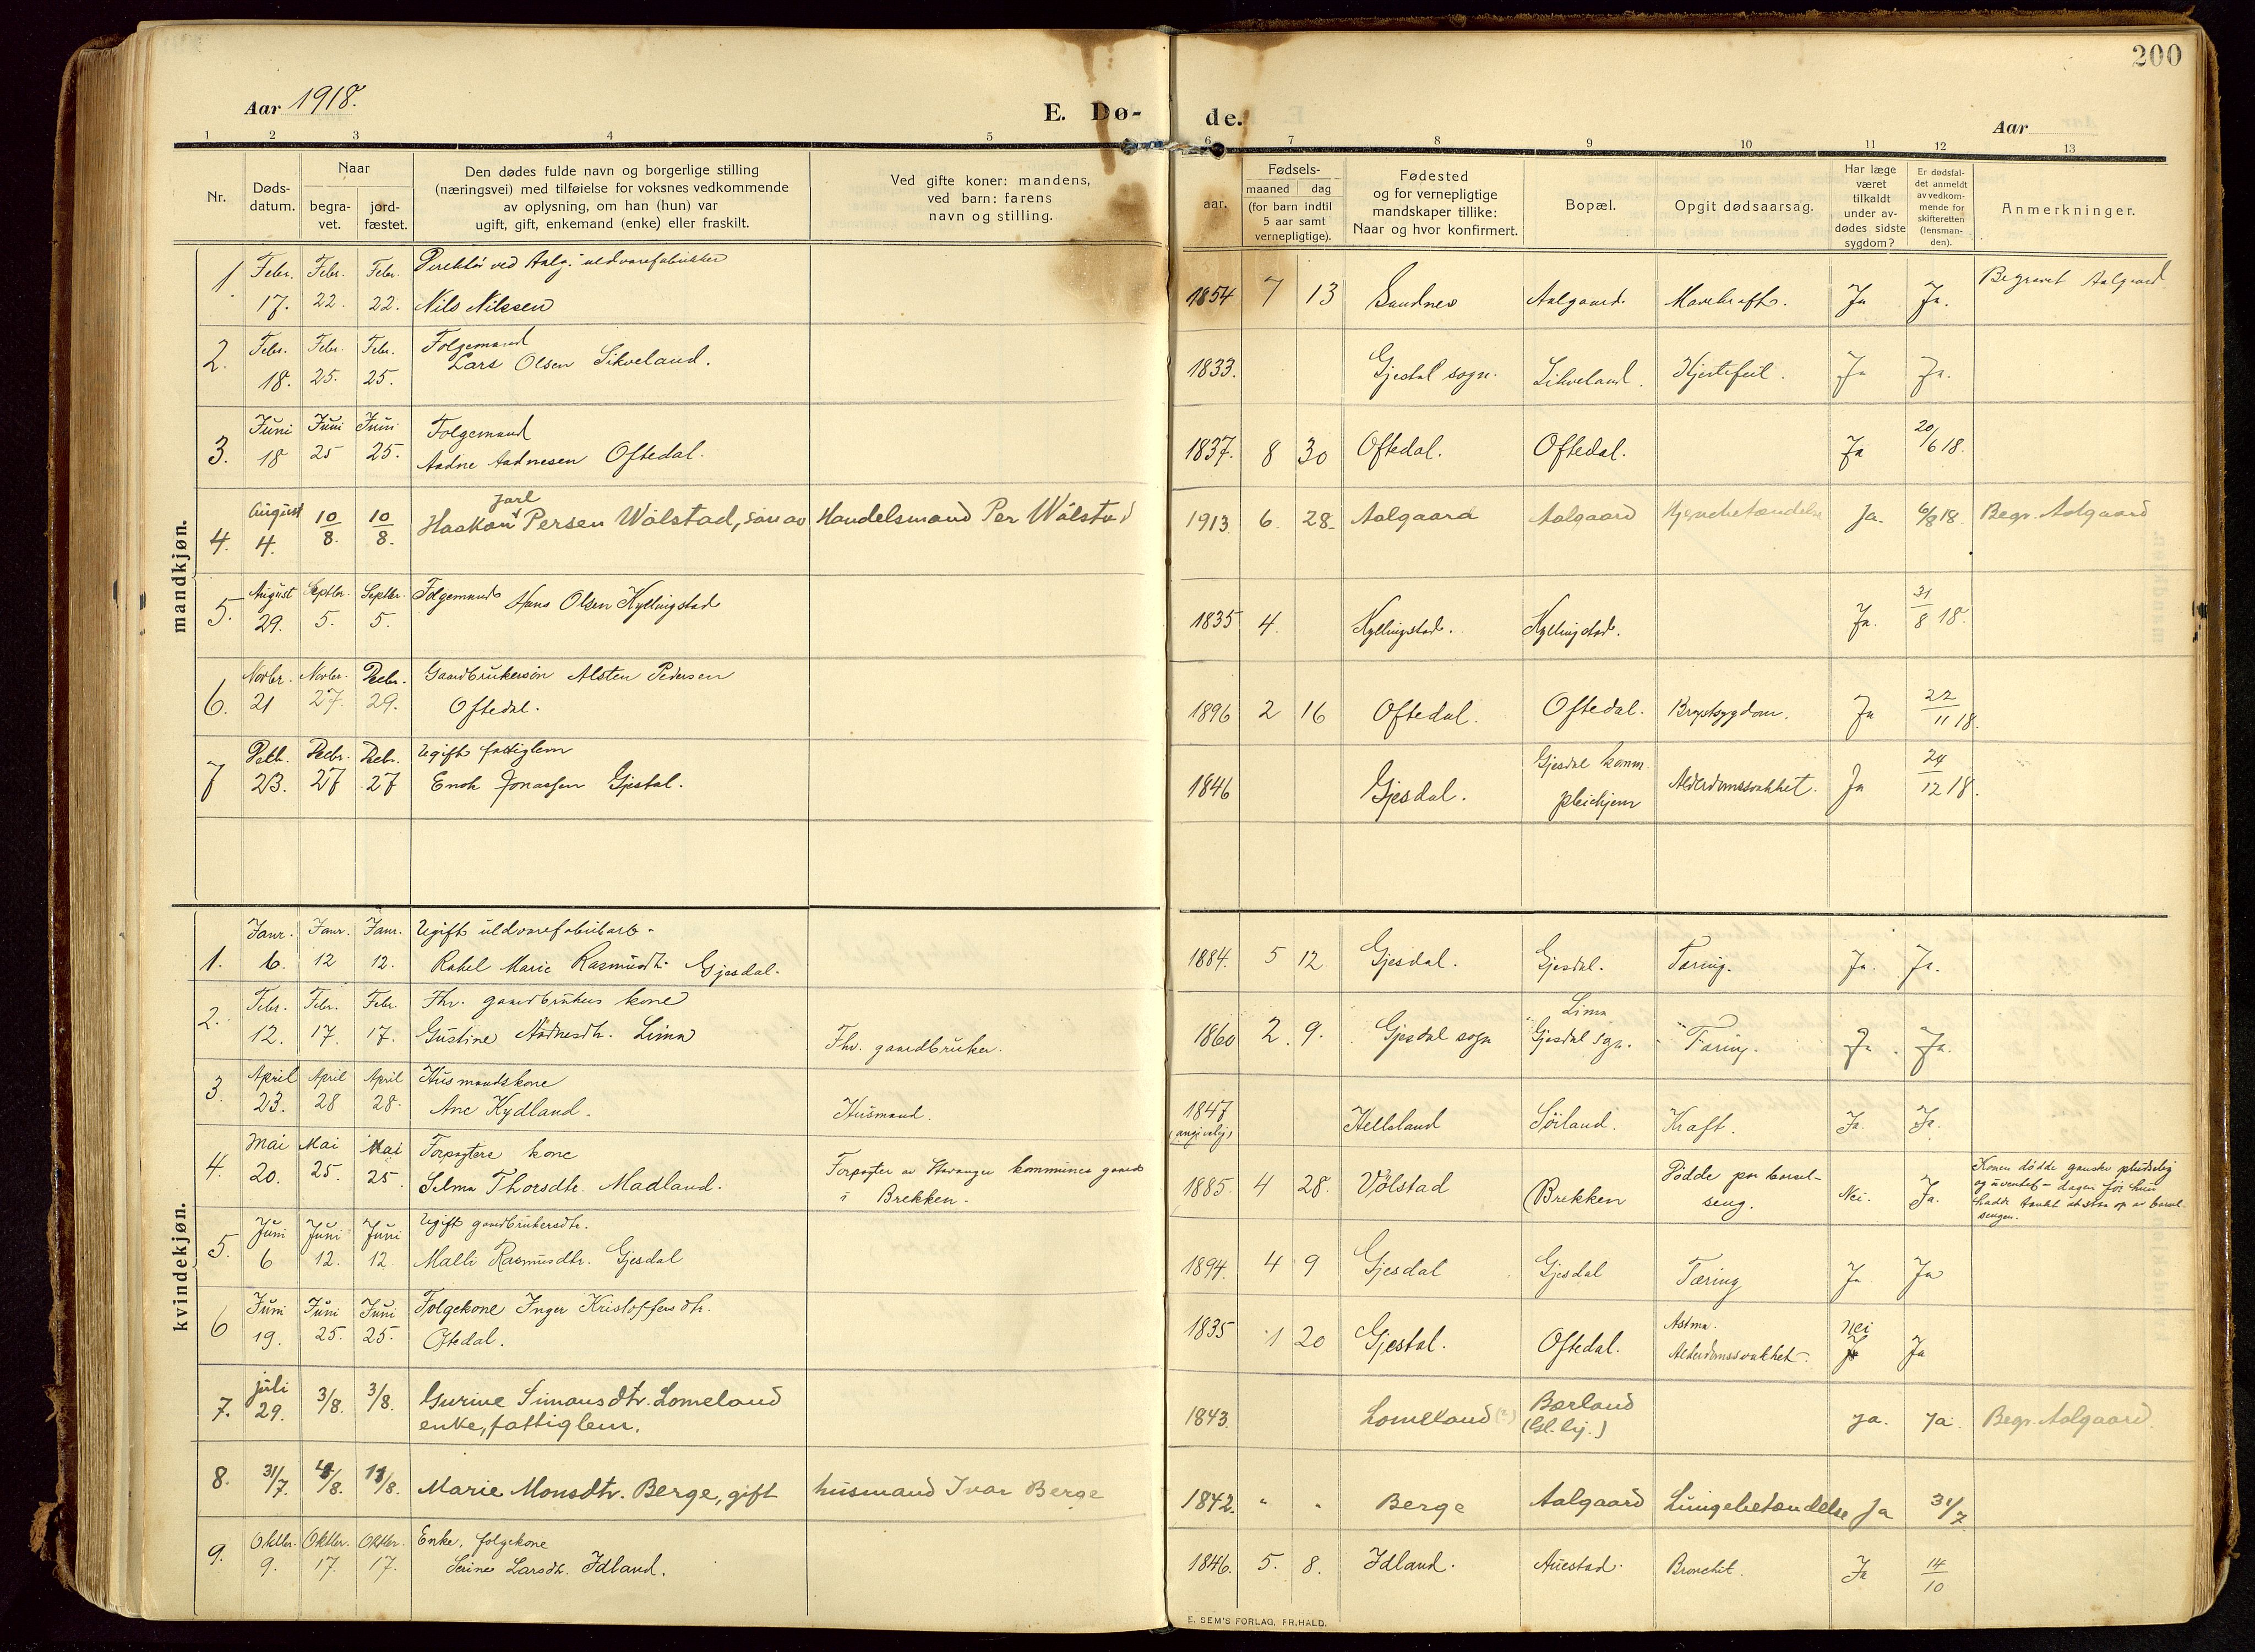 200
Aar 1918.
E. Dø-
de.
Aar
1 2 3 4 5 6 7 8 9 10 11 12 13
Nr.
Døds-
datum.
Naar
begra-
vet.
jord-
fæstet.
Den dødes fulde navn og borgerlige stilling
(næringsvei) med tilføielse for voksnes vedkommende
av oplysning, om han (hun) var
ugift, gift, enkemand (enke) eller fraskilt.
Ved gifte koner: mandens,
ved barn: farens
navn og stilling.
Fødsels-
aar.
maaned dag
(for barn indtil
5 aar samt
vernepligtige).
Fødested
og for vernepligtige
mandskaper tillike:
Naar og hvor konfirmert.
Bopæl.
Opgit dødsaarsag.
Har læge
været
tilkaldt
under av-
dødes sidste
sygdom?
Er dødsfal-
det anmeldt
av vedkom-
mende for
skifteretten
(lensman-
den).
Anmerkninger.
mandkjøn.
1. Febr. 17. Febr. 22. Febr. 22. Direktør ved Aalg. uldvarefabrikker
Nils Nilssen
1854 7 13 Sandnes Aalgaard. Mavekraft. Ja Ja. Begravet Aalgaard.
2. Febr. 18. Febr. 25. Febr. 25. Folgemand
Lars Olsen Sikveland.
1833. Gjestal sogn. Sikveland. Hjertefeil. Ja Ja.
3. Juni 18 Juni 25 Juni 25. Folgemand
Aadne Aadnesen Oftedal.
1837. 8 30 Oftedal. Oftedal. Ja 20/6 18.
4. August 4. 10/8. 10/8. Jarl
Haakon Persen Wålstad, søn av Handelsmand Per Wålstad
1913. 6. 28. Aalgaard Aalgaard Hjernebetændelse Ja. 6/8 18. Begr. Aalgaard
5. August 29. Septbr. 5. Septbr. 5. Folgemand Hans Olsen Kyllingstad
1835 4. Kyllingstad. Kyllingstad. Ja. 31/8 18.
6. Novbr. 21 Novbr. 27. Decbr. 29. Gaardbrukersøn Alsten Pedersen
Oftedal.
1896 2 16 Oftedal. Oftedal. Brystsygdom. Ja 22/11 18.
7 Decbr. 23. Decbr. 27 Decbr. 27 Ugift fattiglem
Enok Jonassen Gjestal.
1846 Gjesdal. Gjesdal komm. pleiehjem Alderdomssvakhet. Ja 24/12 18.
kvindekjøn.
1. Janr. 6. Janr. 12 Janr. 12. Ugift uldvarefabrikarb.
Rakel Marie Rasmusdtr. Gjesdal.
1884. 5 12 Gjesdal. Gjesdal. Tæring. Ja. Ja.
2. Febr. 12. Febr. 17. Febr. 17. Fhv. gaardbrukers kone
Gustine Aadnesdtr. Lima Fhv. gaardbruker.
1860 2. 9. Gjesdal sogn Lima
Gjesdal sgn. Tæring. Ja. Ja.
3. April 23. April 28 April 28. Husmandskone
Ane Kydland. Husmand.
1847
(angivelig) Hellsland Sørland. Kraft. Ja. Ja.
4. Mai 20. Mai 25. Mai 25. Forpagters kone
Selma Thorsdtr. Madland. Forpagter av Stavanger kommunes gaard
i Brekken.
1885. 4 28. Vølstad Brekken Dødde paa barsel-
seng. Nei. Ja. Konen dødde ganske pludselig
og uventet - dagen før hun
hadde tænkt at staa op av barsel-
sengen.
5. Juni 6 Juni 12. Juni 12 Ugift gaardbrukersdtr.
Malli Rasmusdtr. Gjesdal
1894. 4 9 Gjesdal Gjesdal Tæring Ja. Ja
6 Juni 19. Juni 25. Juni 25. Folgekone Inger Kristoffersdtr.
Oftedal.
1835 1 20 Gjestal. Oftedal. Astma.
Alderdomssvakhet. nei Ja
7. juli 29. 3/8. 3/8. Gurine Simonsdtr. Lomeland
enke, fattiglem.
1843. Lomeland (?) Børland
(Gl. bj.) Ja. Ja. Begr. Aalgaard.
8. 31/7. /8. 11/8. Marie Monsdtr. Berge, gift husmand Ivar Berge
1842. " " Berge Aalgaard Lungebetændelse Ja 31/7
9. Oktbr. 9. Oktbr. 17. Oktbr. 17. Enke, folgekone
Serine Larsdtr. Idland.
1846. 5. 8. Idland. Auestad. Bronchit. Ja 14/10
E. SEM'S FORLAG, FR.HALD.